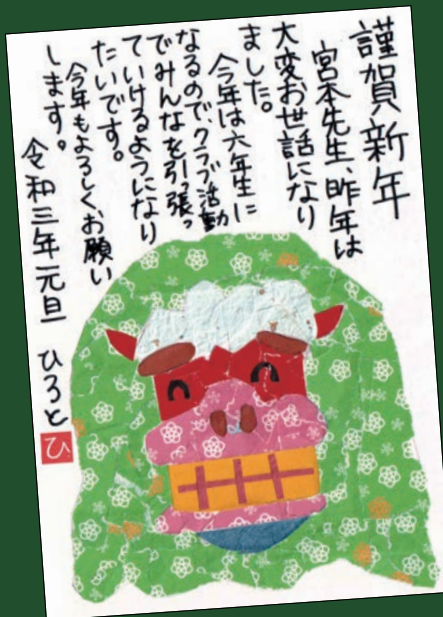 謹賀新年
宮本先生、昨年は
大変お世話になり
ました。
今年は六年生に
なるので、クラブ活動
でみんなを引っ張っ
ていけるようになり
たいです。
今年もよろしくお願い
します。
令和三年元旦
ひろと
ひ